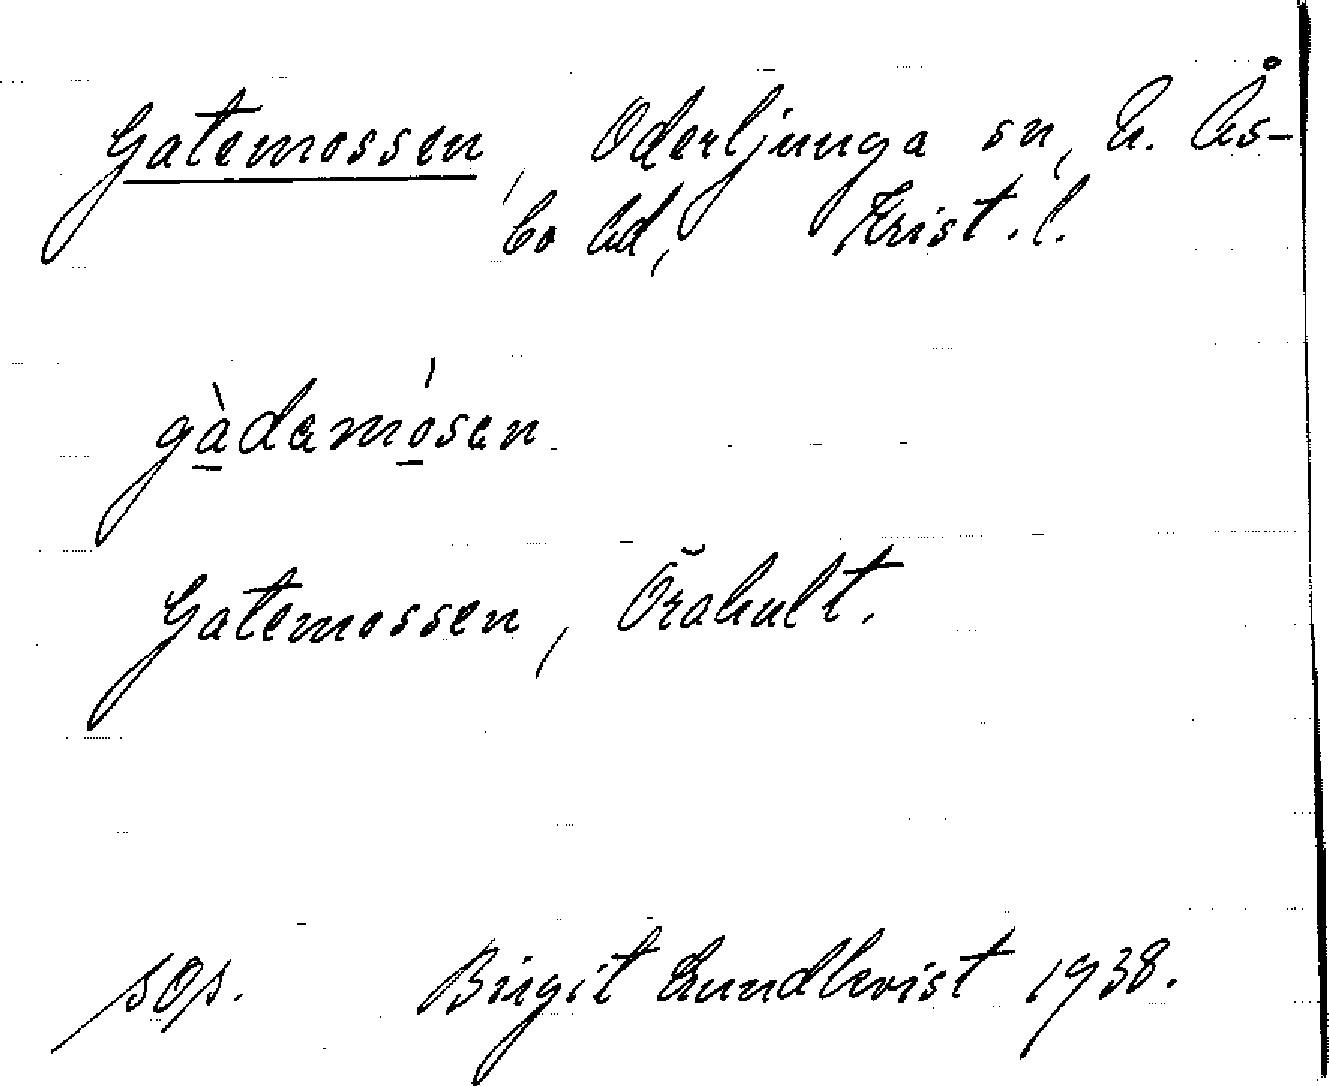 Gatemossen, Oderljunga sn, N. Ås-
bo hd, Krist. l.
gàdamósen
Gatemossen, Örahult.
sop. Birgit Lundkvist 1938.